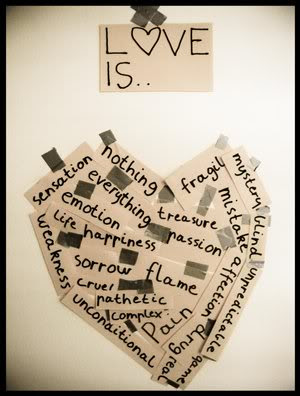 LOVE
IS..
nothing
sensation
everything
fragil
mystery
emotion
treasure
mistake
blind
life
happiness
passion
weakness
affection
unpredictable
sorrow
flame
cruel
pathetic
complex
Pain
unconditional
drug
real
game